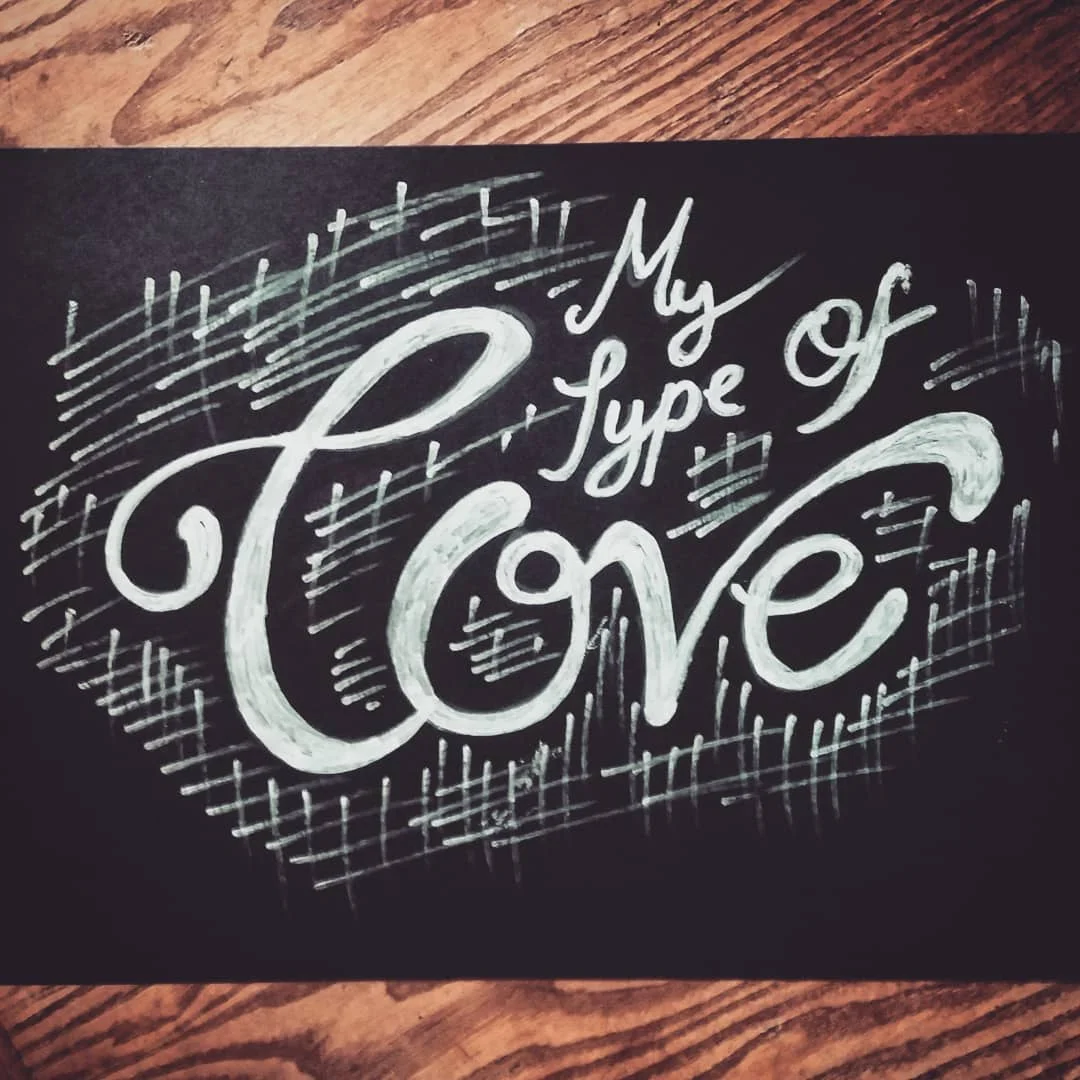 My
Type Of
Love